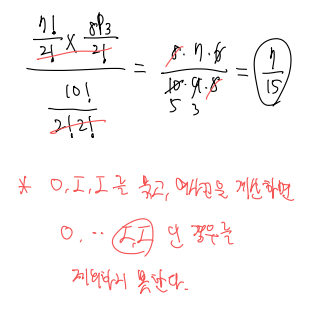 7!/2! × 8P3/2!
10!/2!2!
= 8·7·6/10·9·8 = 7/15
5 3
* O, I, I 를 묶고, 여사건을 계산하면
O, ·· I, I 인 경우를
제외하지 못한다.